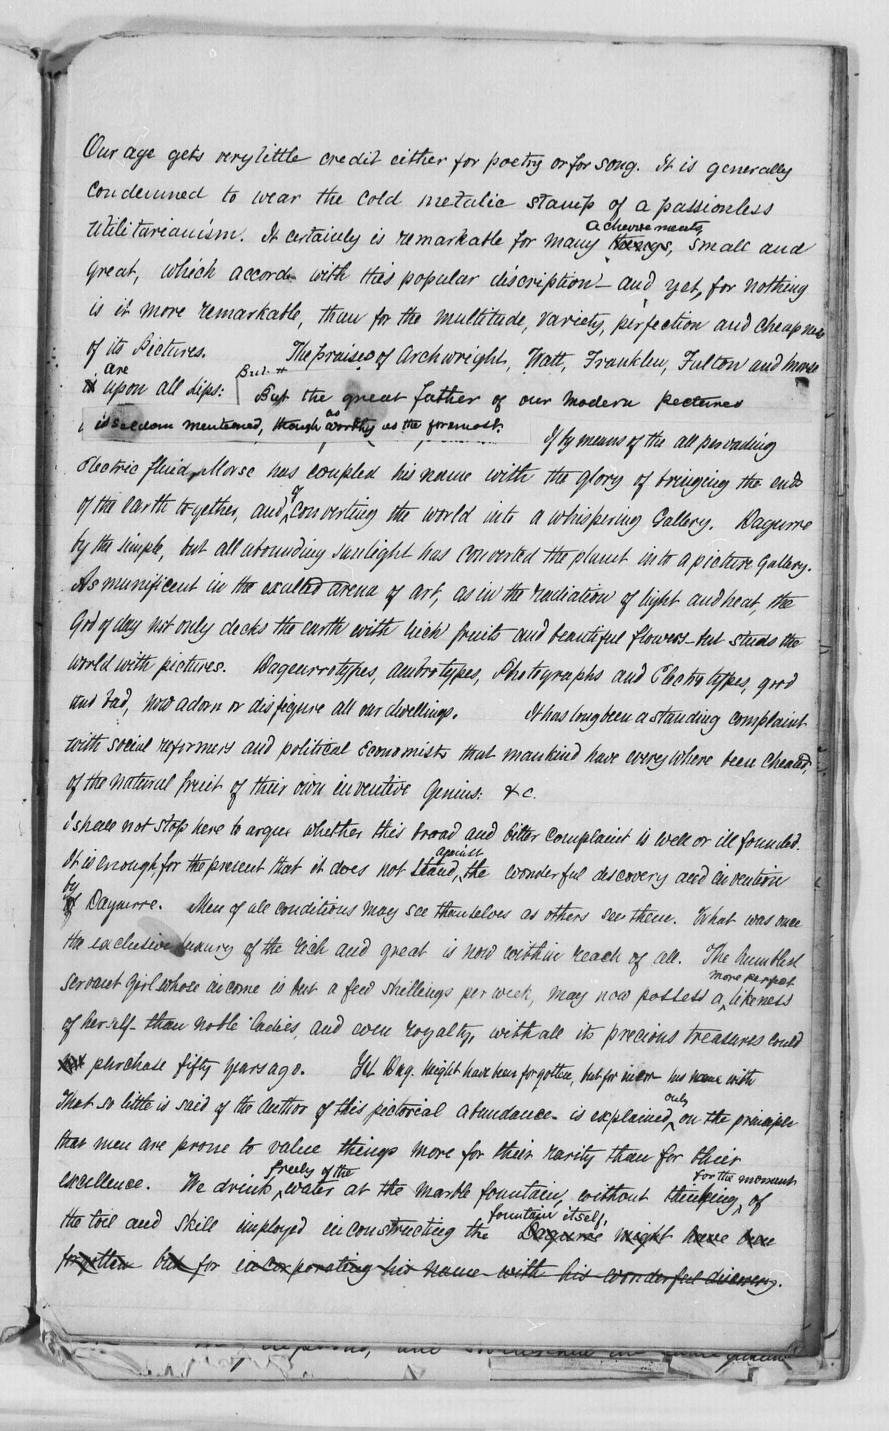 Our age gets very little credit either for poetry or for song. It is generally
condemned to wear the cold metalic stamp of a passionless
achievements
Utilitarianism. It certainly is remarkable for many things, small and
great, which accord with this popular discription — and yet, for nothing
is it more remarkable, than for the multitude, variety, perfection and cheapness
of its Pictures. The praises of Archwright, Watt, Franklin, Fulton and Morse
are
upon all lips: But the great father of our modern pictures
is seldom mentioned, though as worthy as the foremost.
If by means of the all pervading
Electric fluid, Morse has coupled his name with the glory of bringing the ends
of
of the earth together, and converting the world into a whispering Gallery. Dagurre
by the simple, but all abounding sunlight has converted the planet into a picture Gallery.
As munificent in the exalted arena of art, as in the radiation of light and heat, the
God of day not only decks the earth with rich fruits and beautiful flowers — but studs the
world with pictures. Daguerrotypes, Ambrotypes, Photographs and Electrotypes, good
and bad, now adorn or disfigure all our dwellings. It has long been a standing complaint
with social reformers and political Economists that mankind have everywhere been cheated,
of the natural fruit of their own inventive Genius: &c.
I shall not stop here to argue whether this broad and bitter complaint is well or ill founded.
against
It is enough, for the present that it does not stand, the wonderful discovery and invention
by
of Dagurre. Men of all conditions may see themselves as others see them. What was once
the exclusive luxury of the rich and great is now within reach of all. The humblest
more perfect
servant girl whose income is but a few shillings per week, may now possess a likeness
of herself than noble ladies, and even royalty, with all its precious treasures could
purchase fifty years ago. Yet Dag. might have been forgotten, but for incor- his name with
only
That so little is said of the Author of this pictorial abundance — is explained on the principle
that men are prone to value things more for their rarity than for their
freely of the
for the moment
excellence. We drink water at the marble fountain, without thinking, of
fountain itself,
the toil and skill imployed in constructing the Dagurre might have been
forgotten but for incorporating his name with his wonderful discovery.